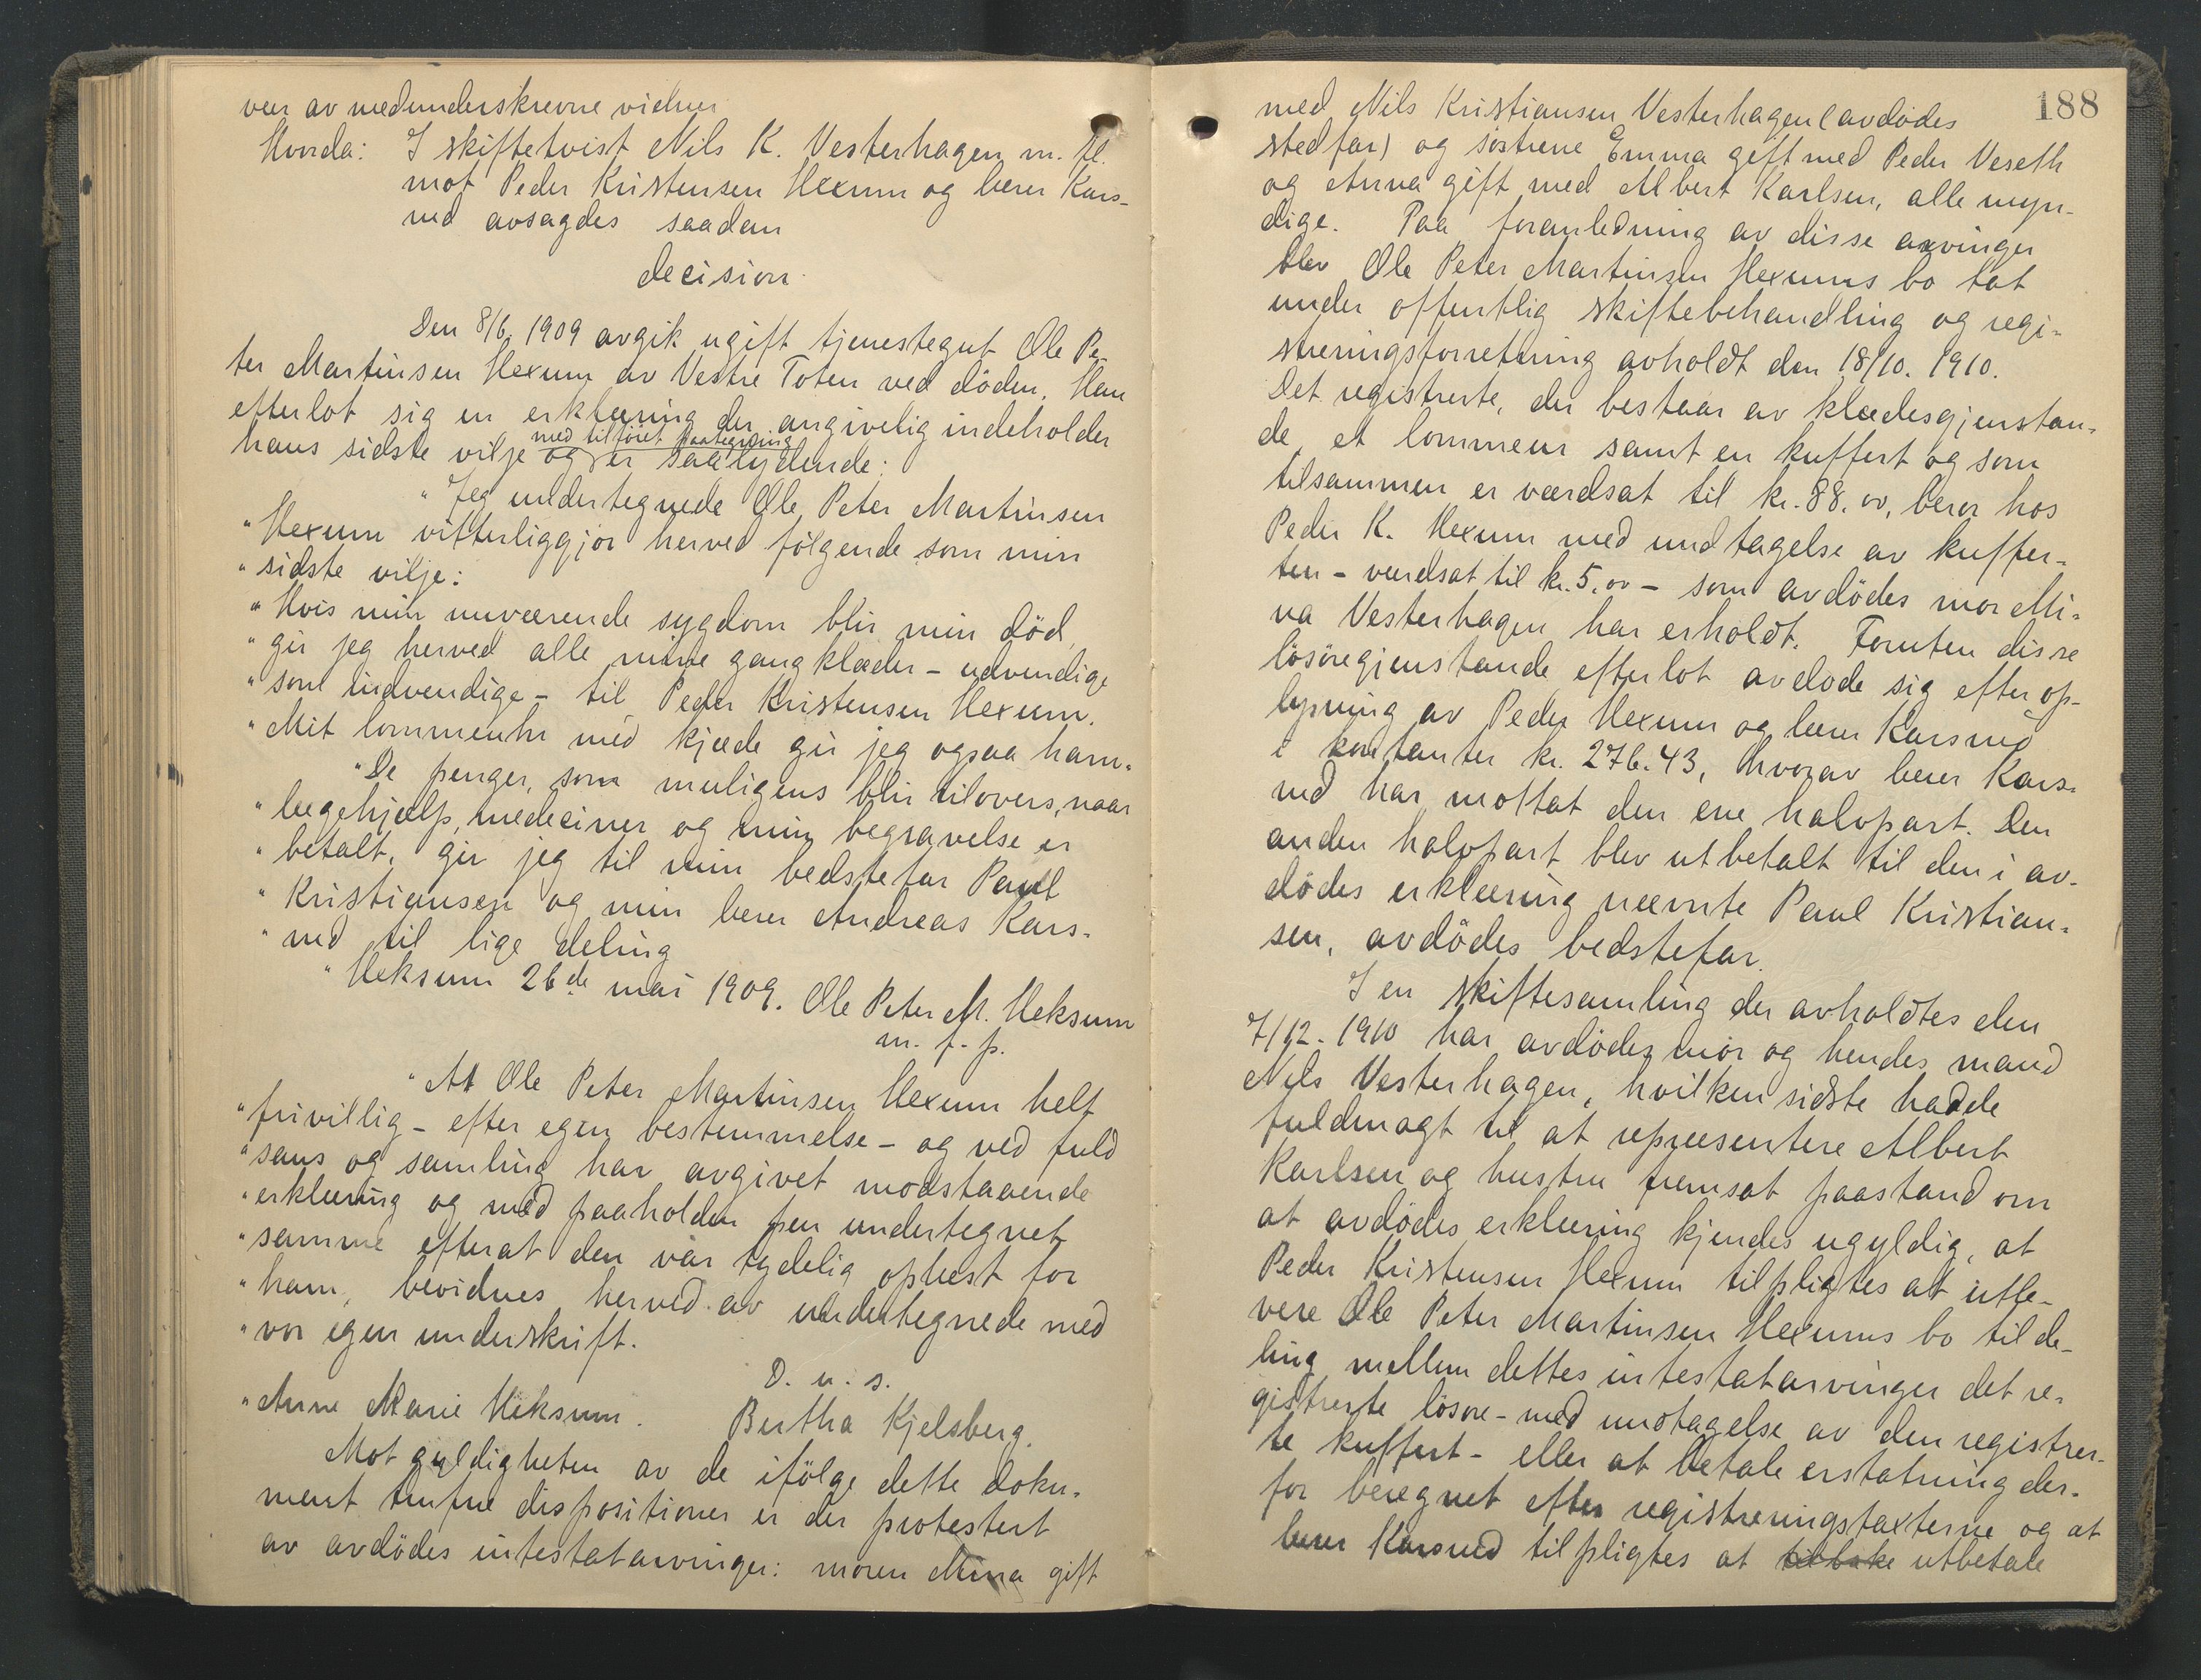 vær av medunderskrevne vidner
Hvorda: I skiftetvist Nils K. Vesterhagen m. fl.
mot Peder Kristensen Hexum og lærer Kars-
rud avsagdes saadan
decision.
Den 8/6 1909 avgik ugift tjenestegut Ole Pe-
ter Martinsen Hexum av Vestre Toten ved döden. Han
efterlot sig en erklæring der angivelig indeholder
med tilföiet paategning
hans sidste vilje og er saalydende:
"Jeg undertegnede Ole Peter Martinsen
"Hexum vitterliggjör herved fölgende som min
"sidste vilje:
"Hvis min nuværende sygdom blir min död,
"gir jeg herved alle mine gangklæder - udvendige
"som indvendige - til Peder Kristensen Hexum.
"Mit lommeuhr med kjæde gir jeg ogsaa ham.
"De penger, som muligens blir tilovers, naar
"lægehjælp, mediciner og min begravelse er
"betalt, gir jeg til min bedstefar Paul
"Kristiansen og min lærer Andreas Kars-
"rud til lige deling
"Heksum 26de mai 1909. Ole Peter M. Heksum
m. f. p.
"At Ole Peter Martinsen Hexum helt
"frivillig - efter egen bestemmelse - og ved fuld
"sans og samling har avgivet modstaaende
"erklæring og med paaholden pen undertegnet
"samme efterat den var tydelig oplæst for
"ham, bevidnes herved av undertegnede med
"vor egen underskrift.
D. u. s.
"Anne Marie Heksum. Bertha Kjelsberg.
Mot gyldigheten av de ifölge dette doku-
ment trufne dispositioner er der protestert
av avdödes intestatarvinger: moren Mina gift
188
med Nils Kristiansen Vesterhagen (avdödes
stedfar) og söstrene Emma gift med Peder Veseth
og Anna gift med Albert Karlsen, alle myn-
dige. Paa foranledning av disse arvinger
blev Ole Peter Martinsen Hexums bo tat
under offentlig skiftebehandling og regi-
streringsforretning avholdt den 18/10. 1910.
Det registrerte, der bestaar av klædesgjenstan-
de, et lommeur samt en kuffert og som
tilsammen er værdsat til kr. 88.00, beror hos
Peder K. Hexum med undtagelse av kuffer-
ten - værdsat til kr. 5.00 - som avdödes mor Mi-
na Vesterhagen har erholdt. Foruten disse
lösöregjenstande efterlot avdöde sig efter op-
lysning av Peder Hexum og lærer Karsrud
i kontanter kr. 276.43, hvorav lærer Kars-
rud har mottat den ene halvpart. Den
anden halvpart blev utbetalt til den i av-
dödes erklæring nævnte Paul Kristian-
sen, avdödes bedstefar.
I en skiftesamling der avholdtes den
7/12. 1910 har avdödes mor og hendes mand
Nils Vesterhagen, hvilken sidste hadde
fuldmagt til at representere Albert
Karlsen og hustru fremsat paastand om
at avdödes erklæring kjendes ugyldig, at
Peder Kristensen Hexum tilpligtes at utle-
vere Ole Peter Martinsen Hexums bo til de-
ling mellem dettes intestatarvinger det re-
gistrerte lösöre - med undtagelse av den registrer-
te kuffert - eller at betale erstatning der-
for beregnet efter registreringstaxterne og at
lærer Karsrud tilpligtes at tilbake utbetale